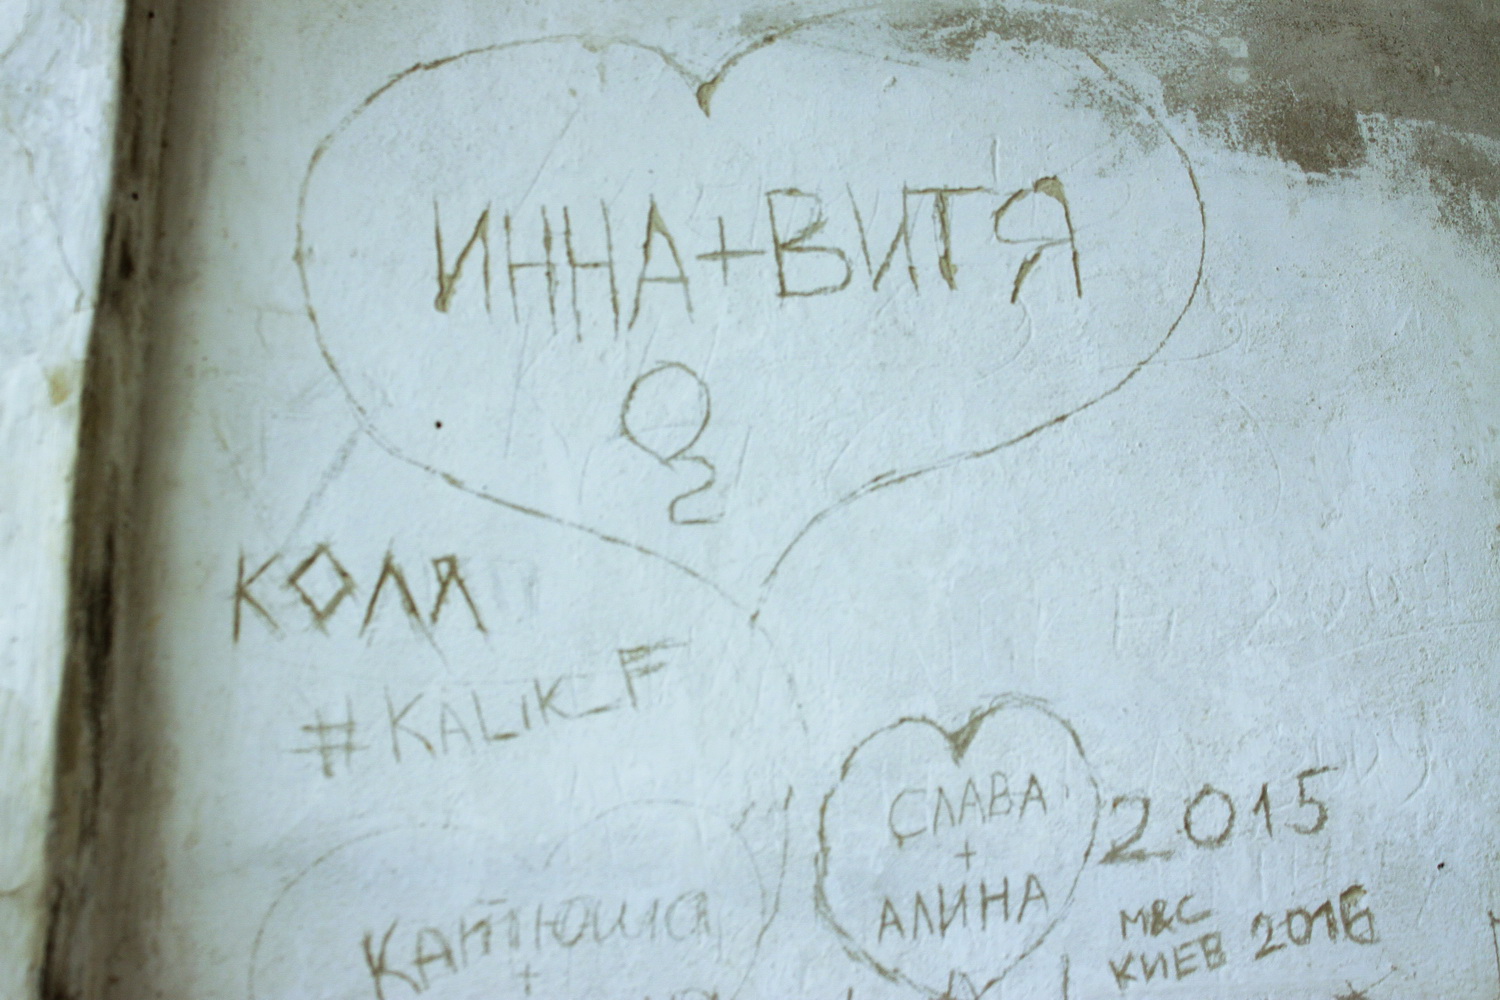 ИННА+ВИТЯ
КОЛЯ
#KALiK_F
СЛАВА
+
АЛИНА
2015
М&С
КИЕВ 2016
Катюша
+